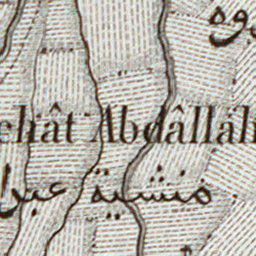 ehât Abdâllah
منشية عبدا